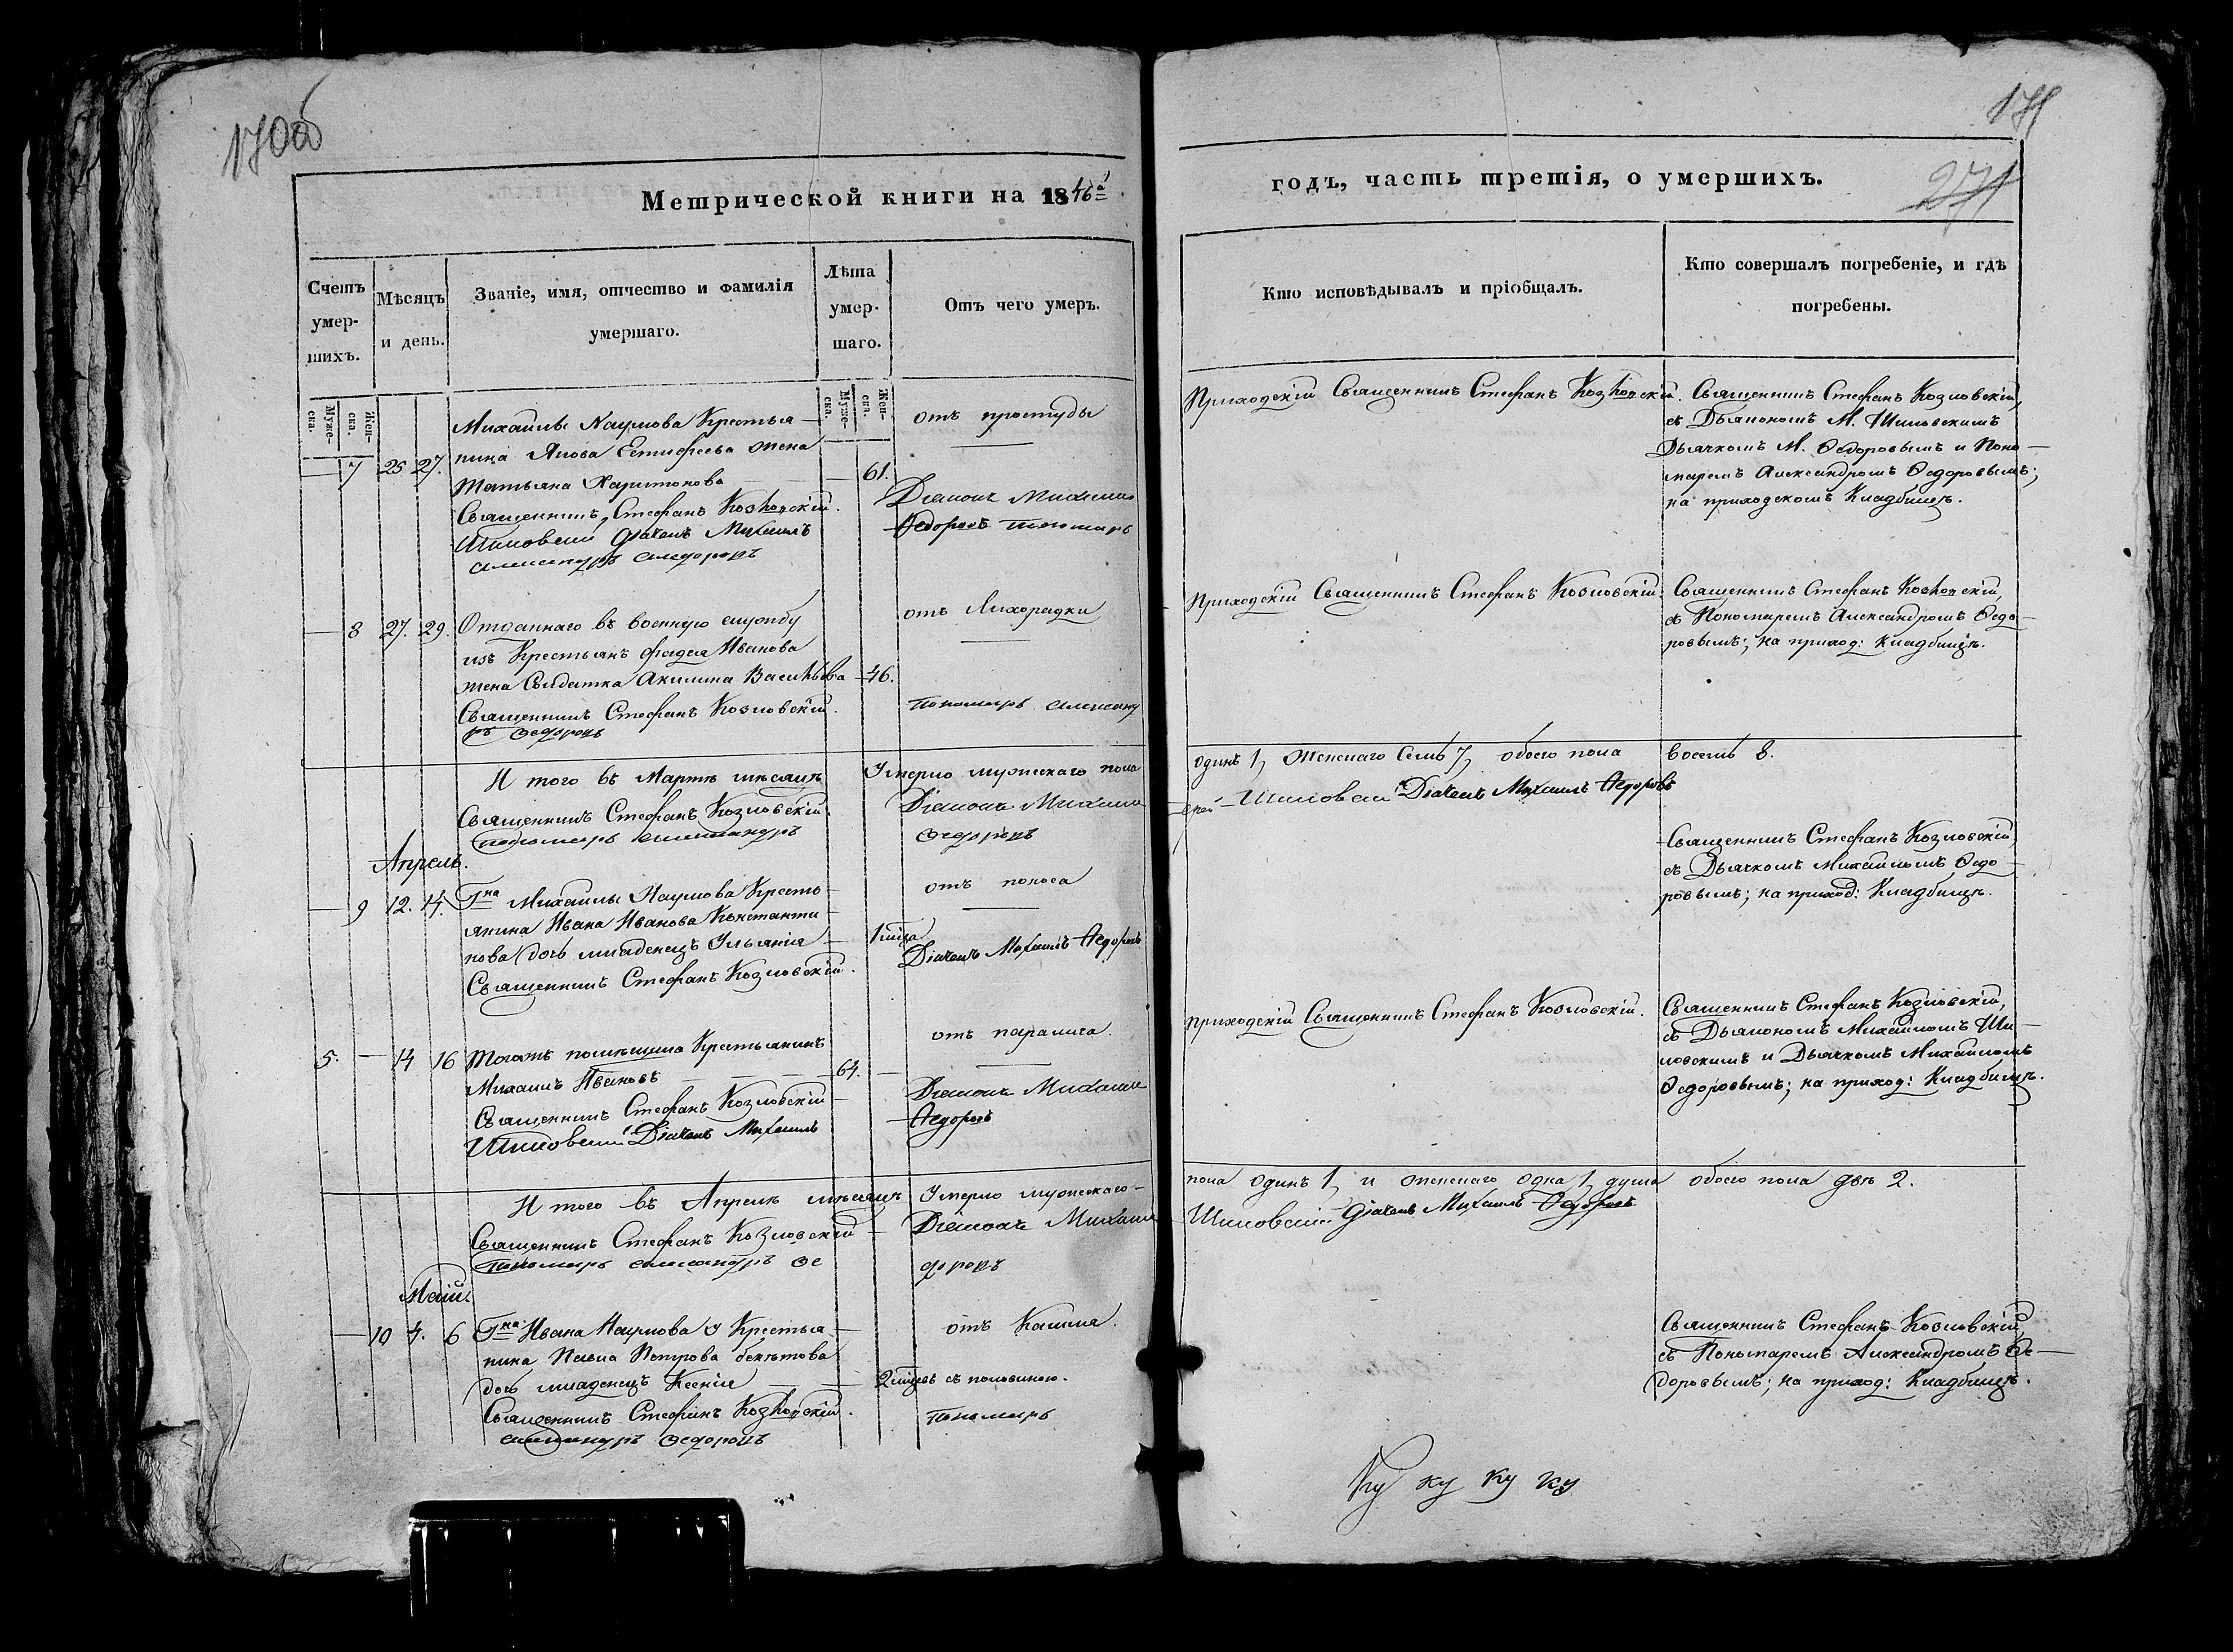 170об
171
271
Метрической книги на 1846й
годъ, часть третія, о умершихъ.
Счетъ умер-шихъ.
Мѣсяцъ и день.
Званіе, имя, отчество и фамилія умершаго.
Лѣта умер-шаго.
Отъ чего умеръ.
Кто исповѣдывалъ и пріобщалъ.
Кто совершалъ погребеніе, и гдѣ погребены.
Муже-ска.
Жен-ска.
Муже-ска.
Жен-ска.
7 25 27.
Михаилы Наумова Крестья-
нина Якова Естифеева жена
Татьяна Харитонова 61.
отъ простуды
Священникъ Стефанъ Козловскій. Діаконъ Михаилъ
Шиловскій Дьячекъ Михаилъ Ѳедоровъ Пономарь
Александръ Ѳедоровъ
Приходскій Священникъ Стефанъ Козловскій.
Священникъ Стефанъ Козловскій,
съ Дьякономъ М. Шиловскимъ
Дьячкомъ М. Ѳедоровымъ и Поно-
маремъ Александромъ Ѳедоровымъ;
на приходскомъ Кладбищѣ.
8 27. 29.
Отданнаго въ военную службу
изъ Крестьянъ Фадея Иванова
жена Солдатка Акилина Васильева 46.
отъ Лихорадки
Священникъ Стефанъ Козловскій. Пономарь Александ
ръ Ѳедоровъ
Приходскій Священникъ Стефанъ Козловскій.
Священникъ Стефанъ Козловскій,
съ Пономаремъ Александромъ Ѳедо-
ровымъ; на приход: Кладбищѣ.
И того въ Мартѣ мѣсяцѣ Умерло мужескаго пола
одинъ 1, Женскаго Семь 7, обоего пола восемь 8.
Священникъ Стефанъ Козловскій. Діаконъ Михаилъ
Шиловскій Дiачекъ Михаилъ Ѳедоровъ
Пономарь Александръ Ѳедоровъ
Апрель.
9 12. 14.
Гна Михаилы Наумова Кресть-
янина Ивана Иванова Константи-
нова дочь младенецъ Ульянія
1 мѣсца
отъ поноса
Священникъ Стефанъ Козловскій. Дiачекъ Михаилъ Ѳедоровъ
Священникъ Стефанъ Козловскій,
съ Дьячкомъ Михаиломъ Ѳедо-
ровымъ; на приход: Кладбищѣ.
5. 14 16
Тогожъ помѣщика Крестьянинъ
Михаилъ Ивановъ 64.
отъ паралича.
Священникъ Стефанъ Козловскій Діаконъ Михаилъ
Шиловскій Дiачекъ Михаилъ Ѳедоровъ
Приходскій Священникъ Стефанъ Козловскій.
Священникъ Стефанъ Козловскій,
съ Дьякономъ Михаиломъ Ши-
ловскимъ и Дьячкомъ Михаиломъ
Ѳедоровымъ; на приход: Кладбищѣ.
И того въ Апрелѣ мѣсяцѣ Умерло мужескаго-
пола одинъ 1, и женскаго одна 1, душа обоего пола двѣ 2.
Священникъ Стефанъ Козловскій Діаконъ Михаилъ
Шиловскій Дiачекъ Михаилъ Ѳедоровъ
Пономарь Александръ Ѳе
доровъ
Маій.
10 4. 6
Гна Ивана Наумова Крестья-
нина Павла Петрова бекетова
дочь младенецъ Ксенія
2 мѣсцевъ съ половиною.
отъ Кашля.
Священникъ Стефанъ Козловскій. Пономарь
Александръ Ѳедоровъ
Священникъ Стефанъ Козловскій,
съ Пономаремъ Александромъ Ѳе-
доровымъ; на приход: Кладбищѣ.
Ку ку ку ку